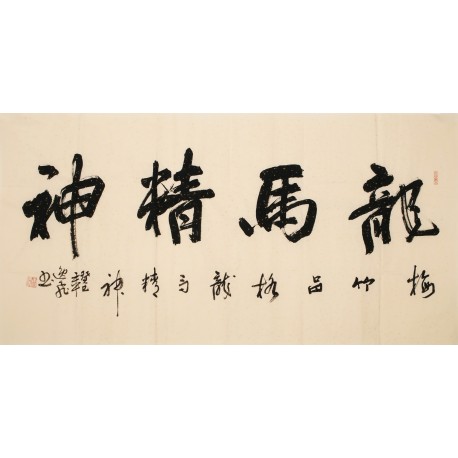 龍馬精神
梅竹品格龍馬精神
逸飛書